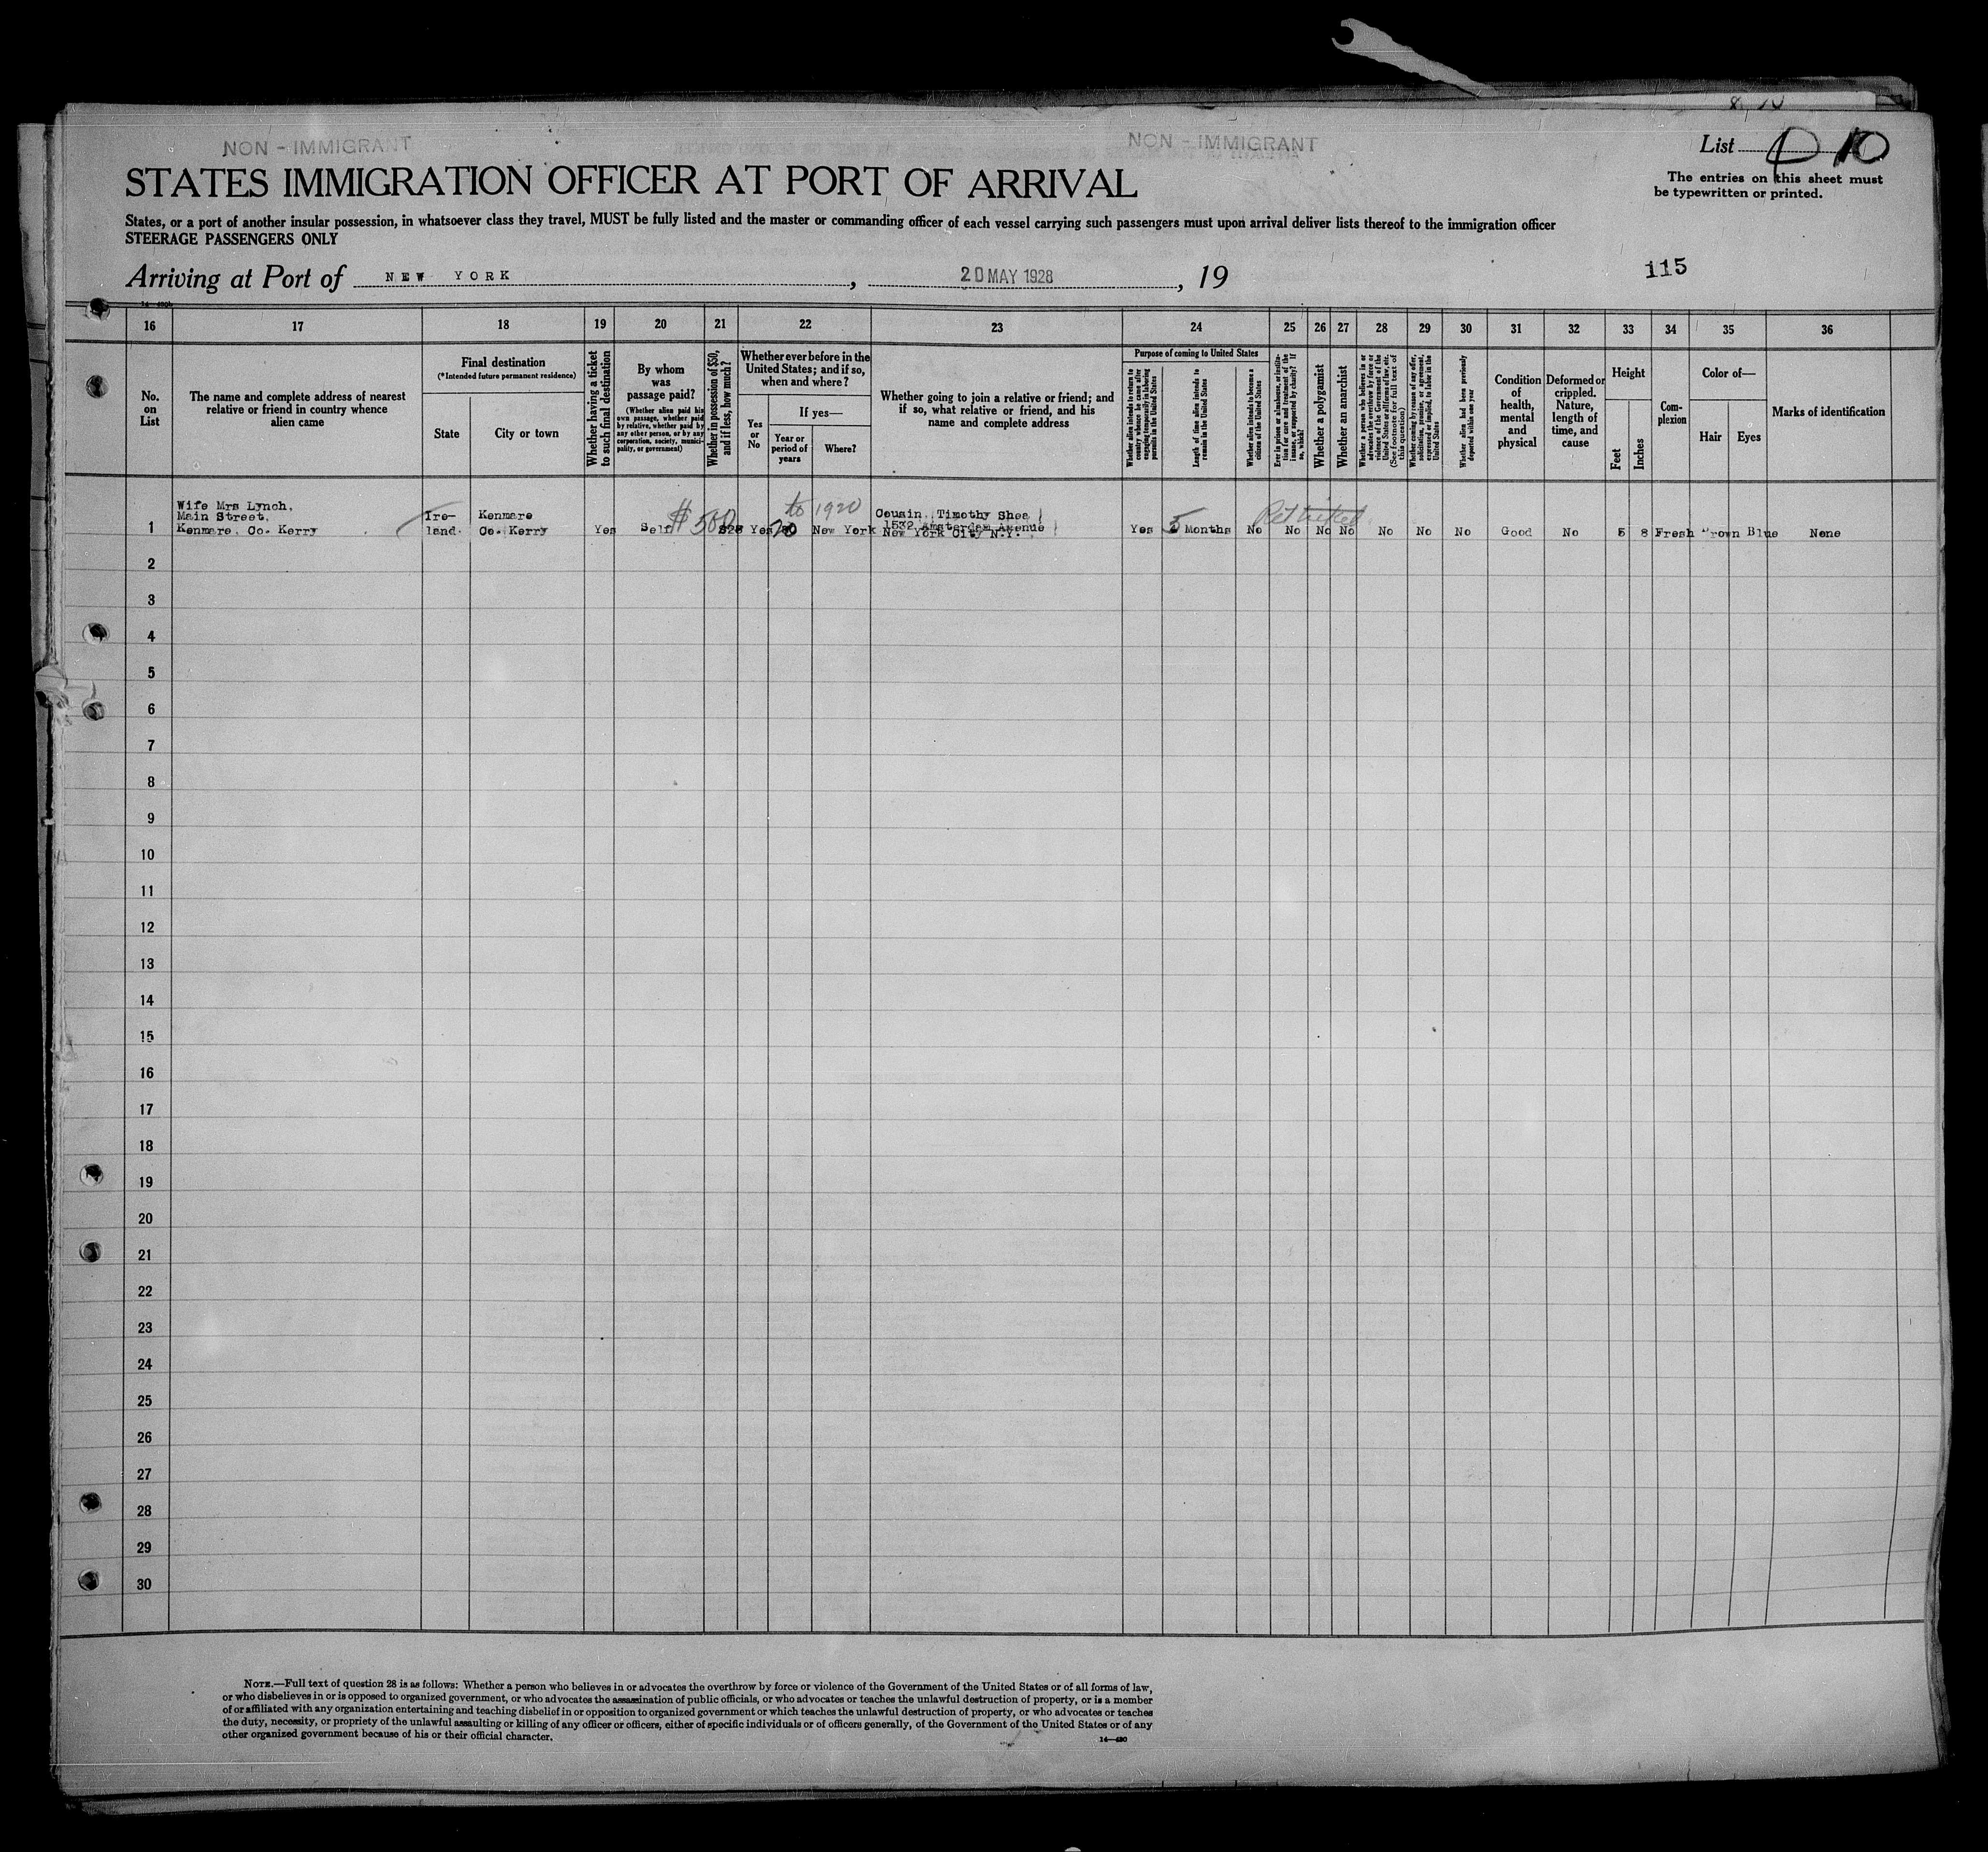 NON - IMMIGRANT
NON - IMMIGRANT
List 10
STATES IMMIGRATION OFFICER AT PORT OF ARRIVAL
The entries on this sheet must
be typewritten or printed.
States, or a port of another insular possession, in whatsoever class they travel, MUST be fully listed and the master or commanding officer of each vessel carrying such passengers must upon arrival deliver lists thereof to the immigration officer
STEERAGE PASSENGERS ONLY
Arriving at Port of NEW YORK, 20 MAY 1928, 19
115
16 17 18 19 20 21 22 23 24 25 26 27 28 29 30 31 32 33 34 35 36
No.
on
List
The name and complete address of nearest
relative or friend in country whence
alien came
Final destination
(*Intended future permanent residence)
State
City or town
Whether having a ticket
to such final destination
By whom
was
passage paid?
(Whether alien paid his
own passage, whether paid
by relative, whether paid by
any other person, or by any
corporation, society, munici-
pality, or government)
Whether in possession of $50,
and if less, how much?
Whether ever before in the
United States; and if so,
when and where?
Yes
or
No
If yes—
Year or
period of
years
Where?
Whether going to join a relative or friend; and
if so, what relative or friend, and his
name and complete address
Purpose of coming to United States
Whether alien intends to return to
country whence he came after
engaging temporarily in laboring
pursuits in the United States
Length of time alien intends to
remain in the United States
Whether alien intends to become a
citizen of the United States
Ever in prison or almshouse, or institu-
tion for care and treatment of the
insane, or supported by charity? If
so, which?
Whether a polygamist
Whether an anarchist
Whether a person who believes in or
advocates the overthrow by force or
violence of the Government of the
United States or all forms of law, etc.
(See footnote for full text of
this question)
Whether coming by reason of any offer,
solicitation, promise, or agreement,
expressed or implied, to labor in the
United States
Whether alien had been previously
deported within one year
Condition
of
health,
mental
and
physical
Deformed or
crippled.
Nature,
length of
time, and
cause
Height
Feet
Inches
Com-
plexion
Color of—
Hair Eyes
Marks of identification
Wife Mrs Lynch,
Main Street,
Kenmare, Co. Kerry
Ire-
land.
Kenmare
Co. Kerry
Yes
Self
$500
Yes
to 1920
New York
Cousin, Timothy Shea
1532 Amsterdam Avenue
New York City N.Y.
Yes 5 Months No No No No No No No Good No 5 8 Fresh Brown Blue None
1
2
3
4
5
6
7
8
9
10
11
12
13
14
15
16
17
18
19
20
21
22
23
24
25
26
27
28
29
30
NOTE.—Full text of question 28 is as follows: Whether a person who believes in or advocates the overthrow by force or violence of the Government of the United States or of all forms of law,
or who disbelieves in or is opposed to organized government, or who advocates the assassination of public officials, or who advocates or teaches the unlawful destruction of property, or is a member
of or affiliated with any organization entertaining and teaching disbelief in or opposition to organized government or which teaches the unlawful destruction of property, or who advocates or teaches
the duty, necessity, or propriety of the unlawful assaulting or killing of any officer or officers, either of specific individuals or of officers generally, of the Government of the United States or of any
other organized government because of his or their official character.
14—480